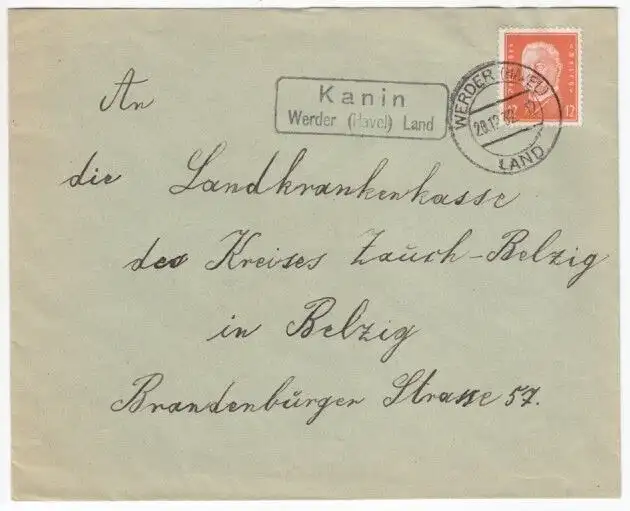 Kanin
Werder (Havel) Land
WERDER (HAVEL)
28.12.32
LAND
12 12
An
die Landkrankenkasse
des Kreises Zauch-Belzig
in Belzig
Brandenbürger Strasse 57.